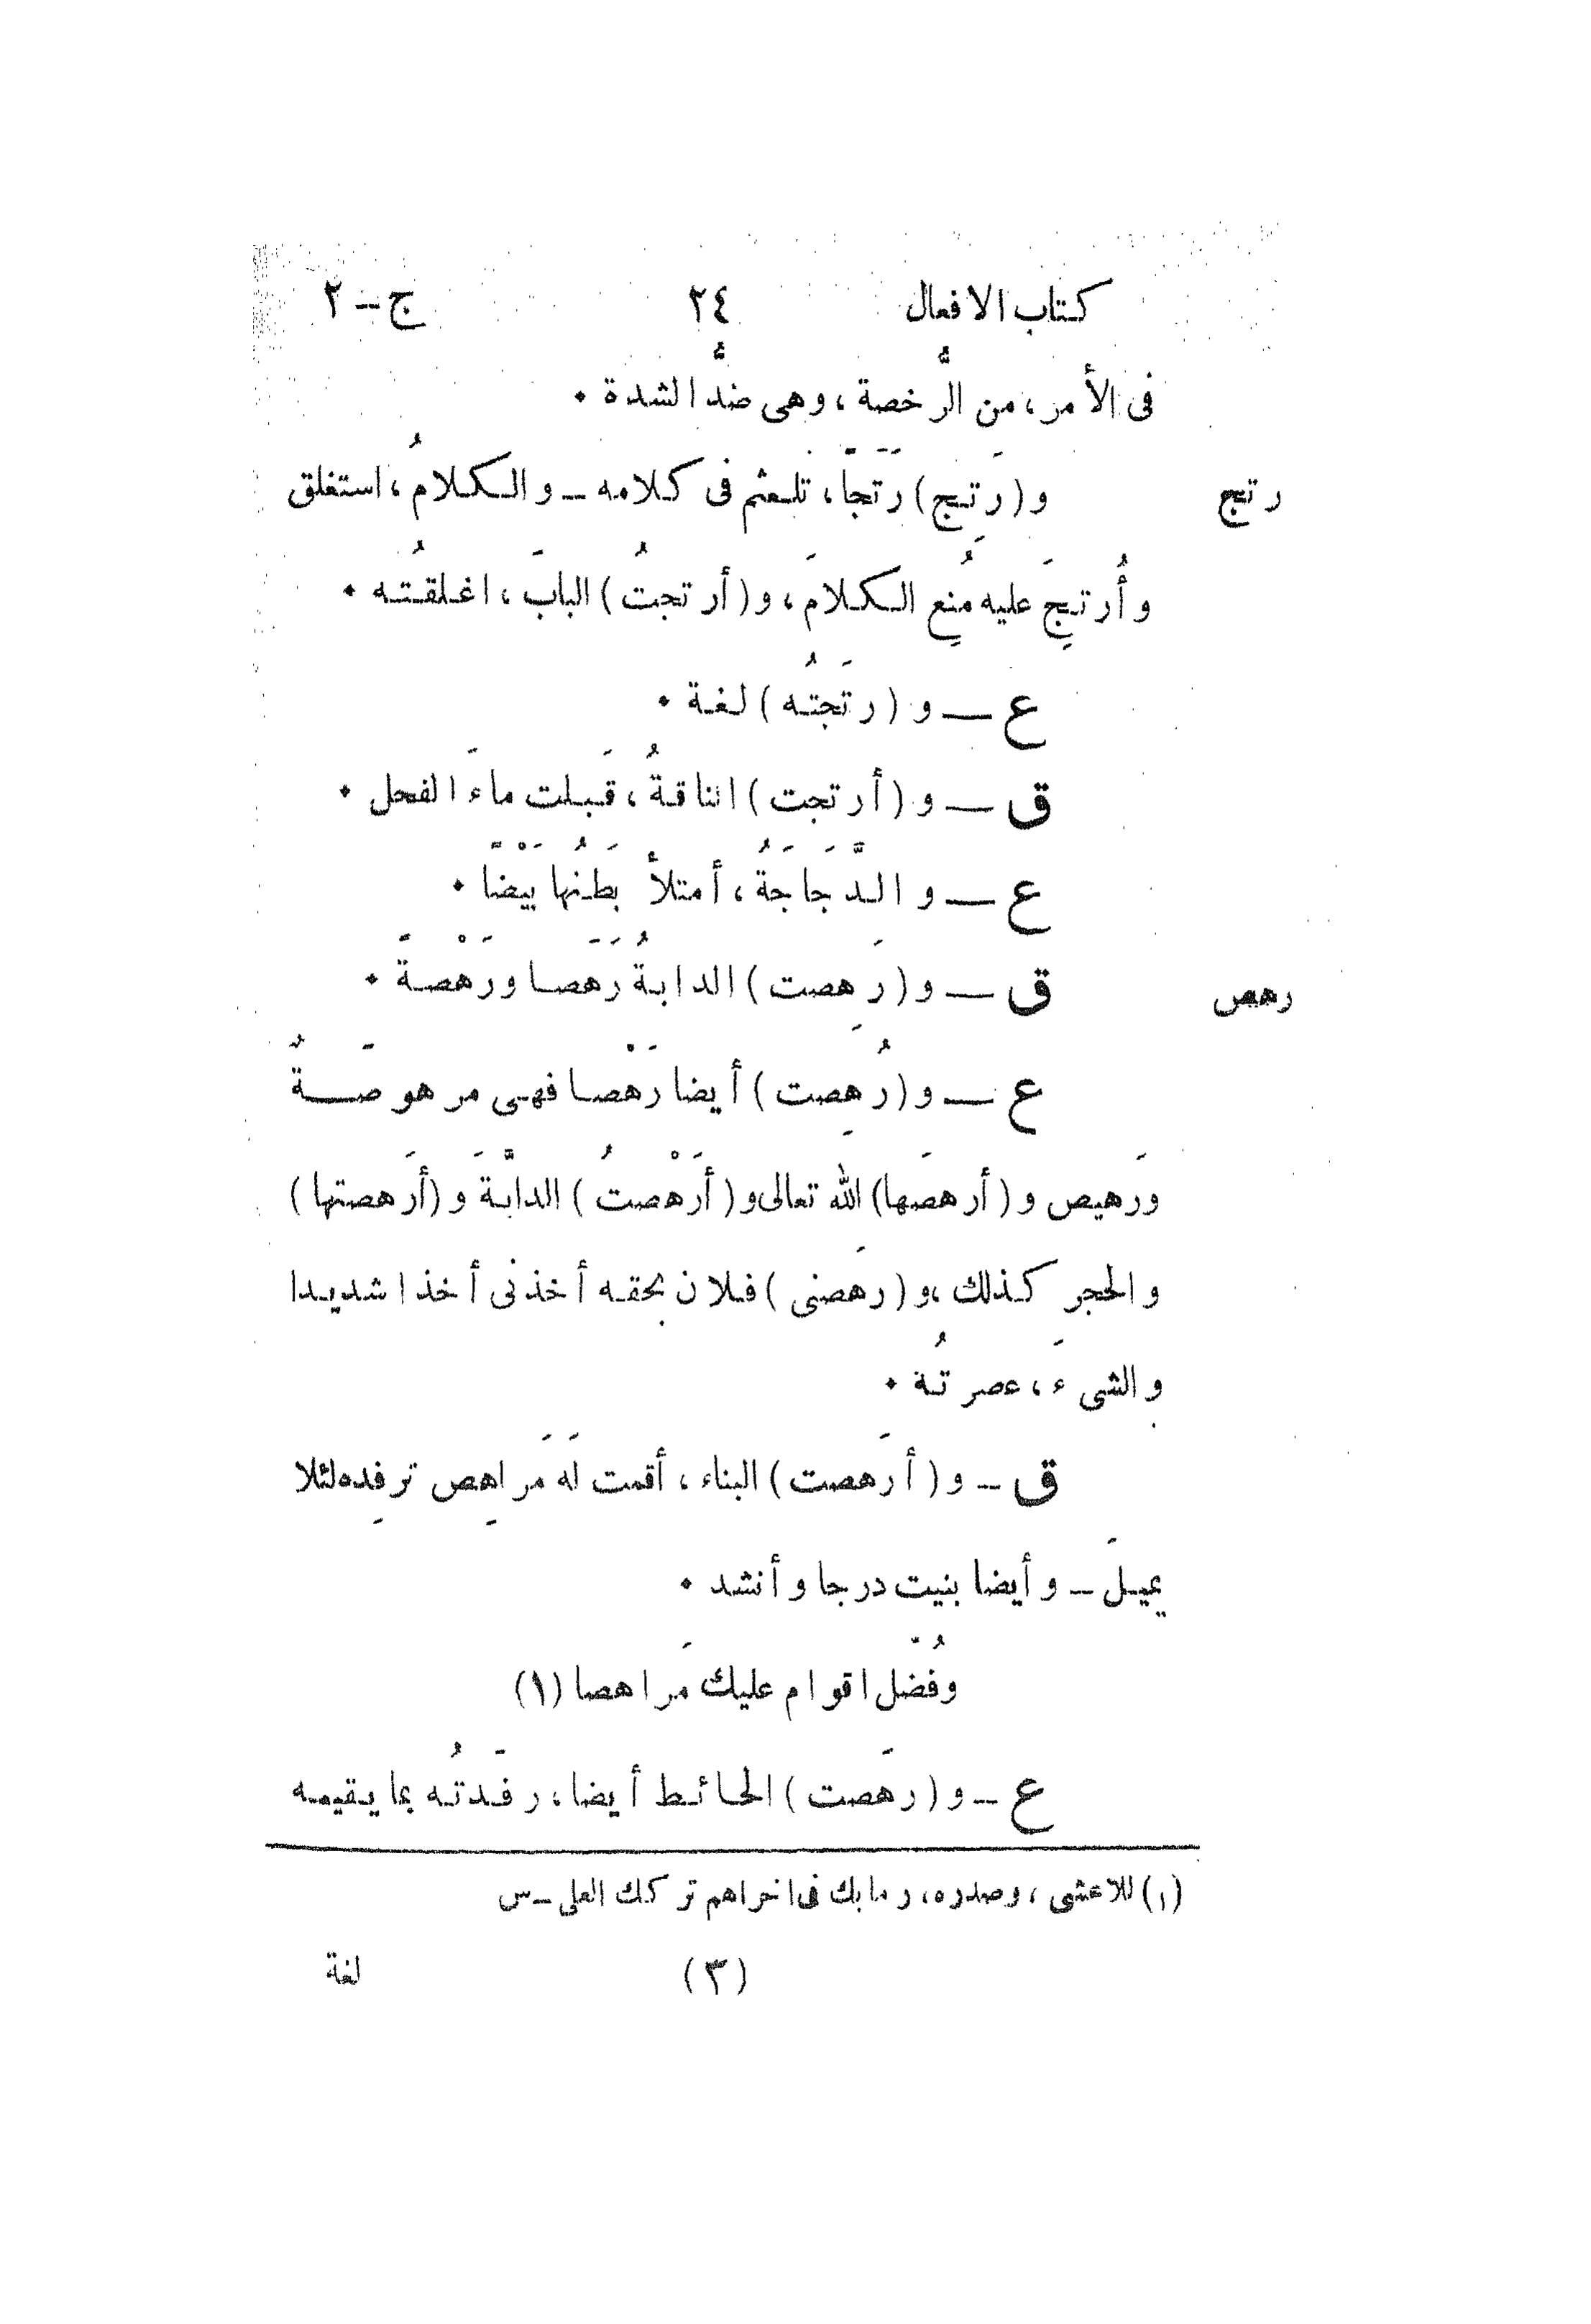 كتاب الافعال ٢٤ ج – ٢
فى الأمر، من الرُّخصة، وهى ضدُّ الشدة •
رتج و (رَتِج) رَتَجًا، تلعثم فى كلامه – والكلامُ، استغلق
وأُرتِجَ عليه مُنِع الكلامَ، و (أرتجتُ) البابَ، اغلقتُه •
ع — و (رتَجتُه) لغة •
ق — و (أرتجت) الناقةُ، قَبلت ماءَ الفحل •
ع — والدَّجَاجَةُ، أمتلأ بَطنُها بَيْضًا •
رهص ق — و (رَهِصت) الدابةُ رَهَصا ورَهْصةً •
ع — و (رُهِصت) أيضا رَهْصا فهى مرهوصَةٌ
ورَهيص و (أرهصَها) الله تعالى و (أرَهْصتُ) الدابَّةَ و (أرَهصتها)
والحجر كذلك، و (رهَصنى) فلان بحقه أخذنى أخذا شديدا
والشىءَ، عصرتُة •
ق – و (أرَهصت) البناء، أقمت لَه مَراهِص ترفِده لئلا
يميلَ – وأيضا بنيت درجا وأنشد •
وفُضّل اقوام عليك مَراهصا (١)
ع – و (رهَصت) الحائط أيضا، رفَدتُه بما يقيمه
(١) للاعشى، وصدره، رمابك فى اخراهم تركك العلى – س
(٣) لغة